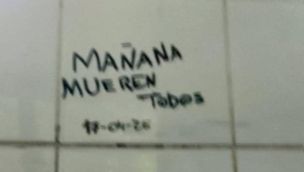 MAÑANA
MUEREN
Tobos
17-04-26